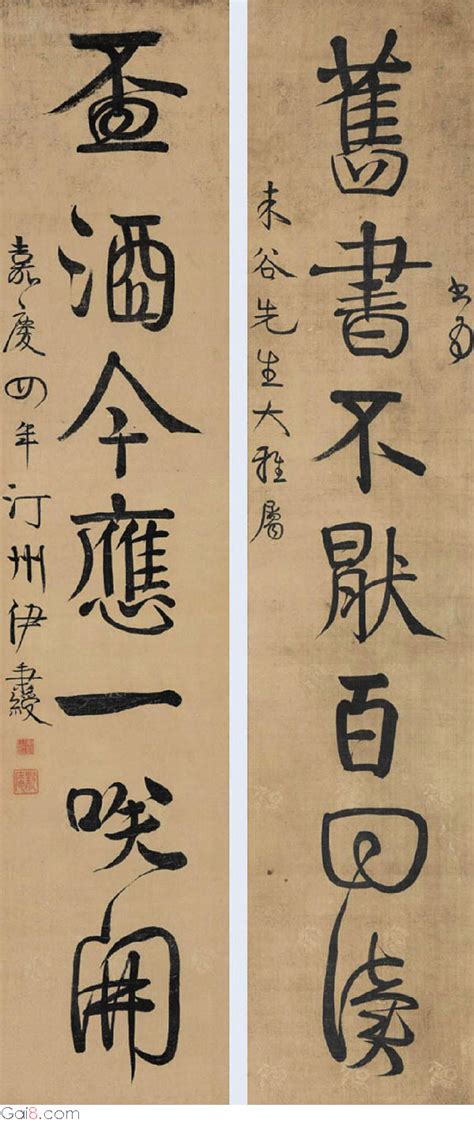 書為
舊書不猒百回讀
未谷先生大雅屬
盃酒今應一咲開
嘉慶四年汀州伊秉綬
Gai8.com